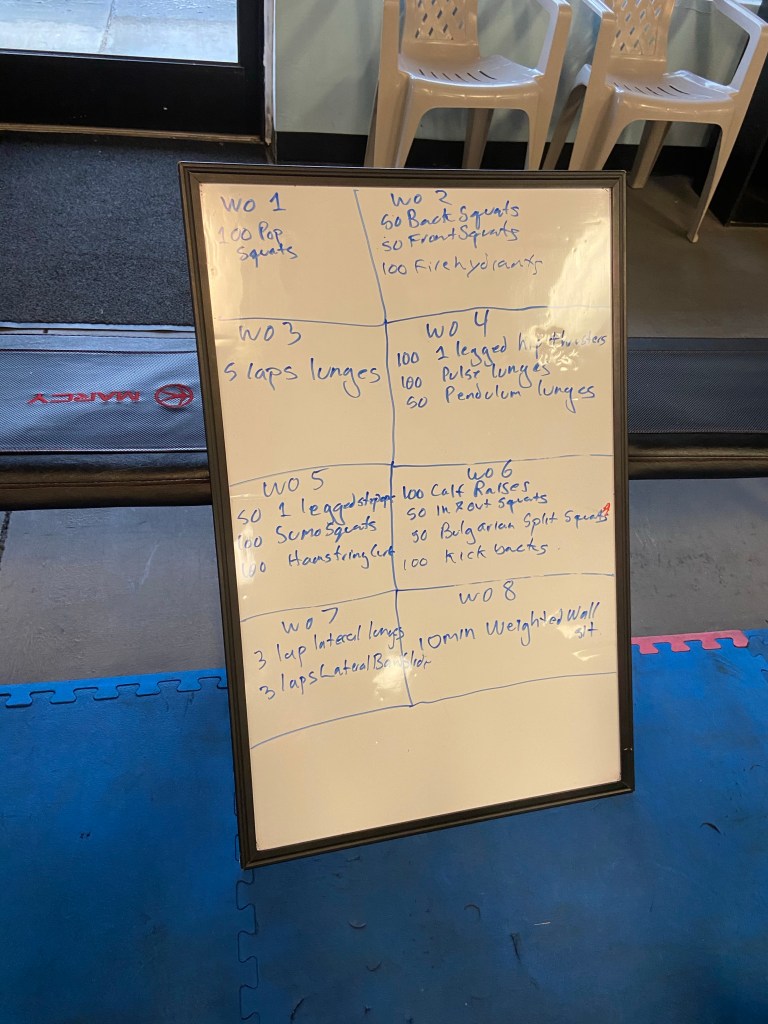 WO 1
100 Pop
Squats
WO 2
50 Back Squats
50 Front Squats
100 Firehydrants
WO 3
5 laps lunges
WO 4
100 1 legged hip thrusters
100 Pulse lunges
50 Pendulum lunges
WO 5
50 1 legged
100 Sumo Squats
100 Hamstring Curl
WO 6
100 Calf Raises
50 In & out Squats
50 Bulgarian Split Squats
100 Kick backs
WO 7
3 lap lateral lunges
3 laps Lateral Band
WO 8
10 min Weighted Wall
sit
MARCY